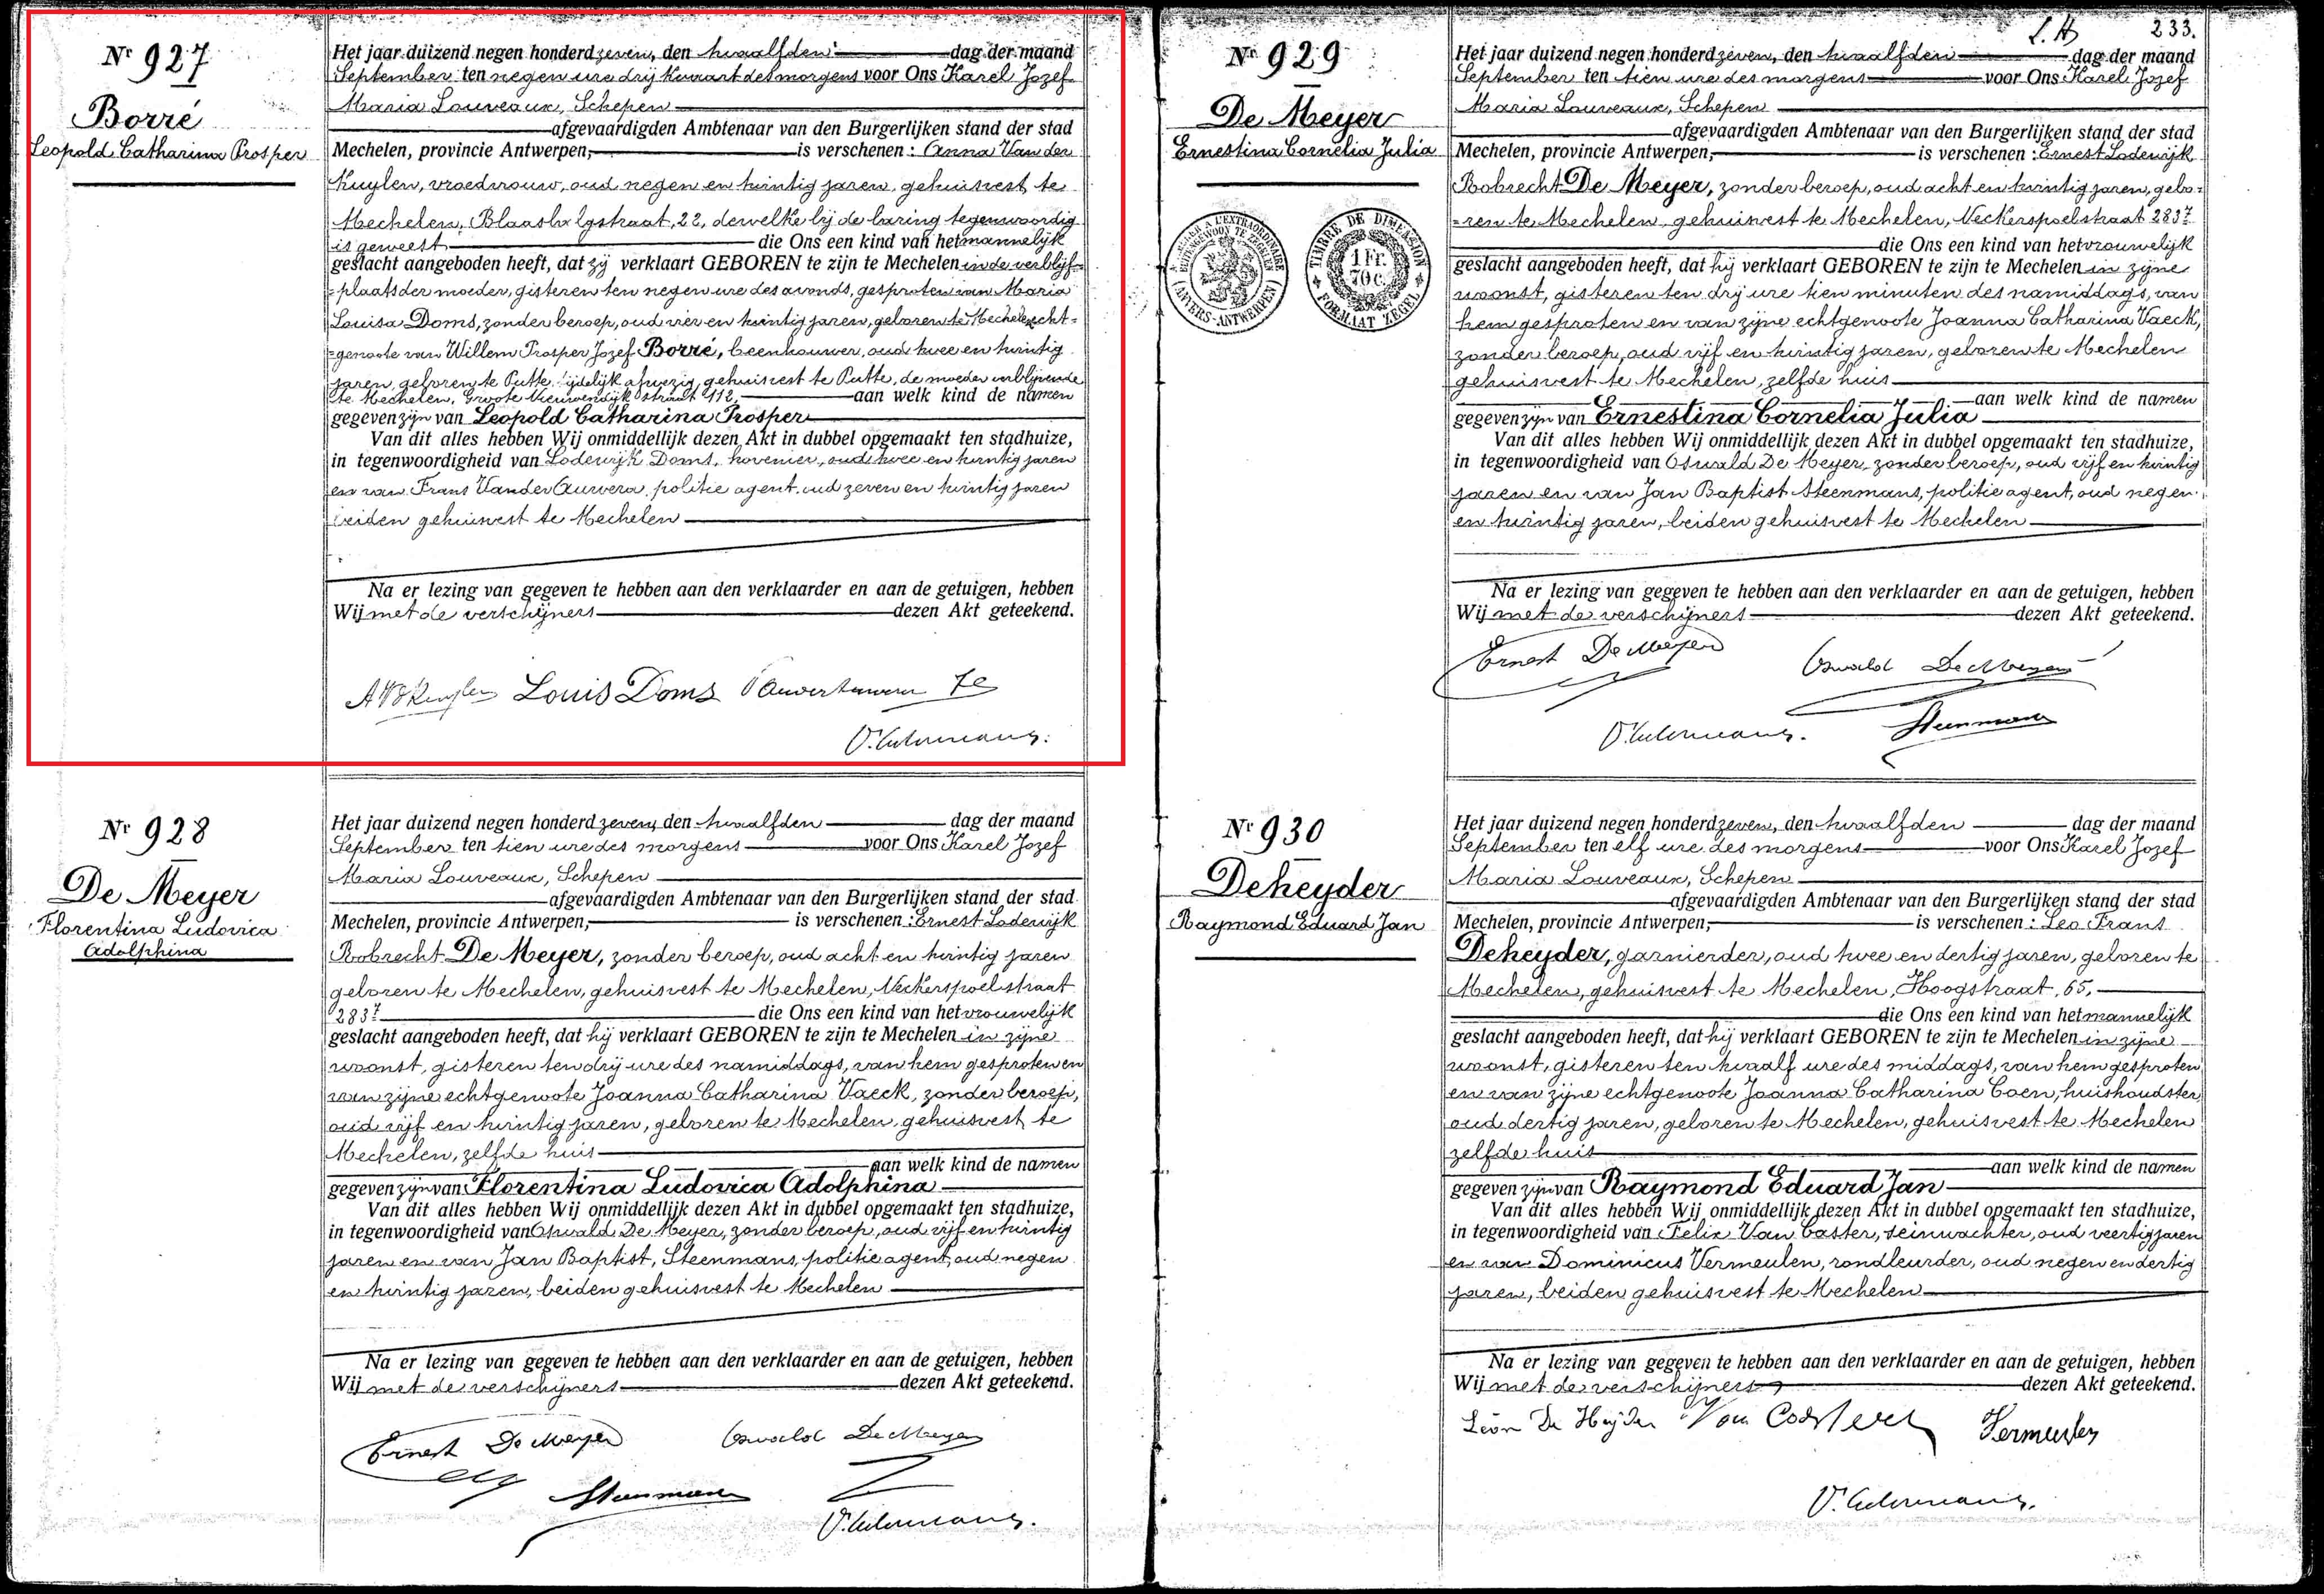 Nr 927
Borré
Leopold Catharina Prosper
Het jaar duizend negen honderd zeven, den twaalfden dag der maand
September ten negen ure drij kwaart des morgens voor Ons Karel Jozef
Maria Louveaux, Schepen
afgevaardigden Ambtenaar van den Burgerlijken stand der stad
Mechelen, provincie Antwerpen, is verschenen : Anna Van der
Kuylen, vroedvrouw, oud negen en twintig jaren, gehuisvest te
Mechelen, Blaasbalgstraat, 22, dewelke bij de baring tegenwoordig
is geweest die Ons een kind van het mannelijk
geslacht aangeboden heeft, dat zij verklaart GEBOREN te zijn te Mechelen in de verblijf=
=plaats der moeder, gisteren ten negen ure des avonds, gesproten van Maria
Louisa Doms, zonder beroep, oud vier en twintig jaren, geboren te Mechelen echt=
=genoote van Willem Prosper Jozef Borré, beenhouwer, oud twee en twintig
jaren, geboren te Putte, tijdelijk afwezig, gehuisvest te Putte, de moeder verblijvende
te Mechelen, Groote Nieuwendijk straat 112, aan welk kind de namen
gegeven zijn van Leopold Catharina Prosper
Van dit alles hebben Wij onmiddellijk dezen Akt in dubbel opgemaakt ten stadhuize,
in tegenwoordigheid van Lodewijk Doms, hovenier, oud twee en twintig jaren
en van Frans Van der Auwera, politie agent, oud zeven en twintig jaren
beiden gehuisvest te Mechelen
Na er lezing van gegeven te hebben aan den verklaarder en aan de getuigen, hebben
Wij met de verschijners dezen Akt geteekend.
Louis Doms
Nr 928
De Meyer
Florentina Ludovica
Adolphina
Het jaar duizend negen honderd zeven, den twaalfden dag der maand
September ten tien ure des morgens voor Ons Karel Jozef
Maria Louveaux, Schepen
afgevaardigden Ambtenaar van den Burgerlijken stand der stad
Mechelen, provincie Antwerpen, is verschenen : Ernest Lodewijk
Robrecht De Meyer, zonder beroep, oud acht en twintig jaren
geboren te Mechelen, gehuisvest te Mechelen, Neckerspoelstraat
283 7 die Ons een kind van het vrouwelijk
geslacht aangeboden heeft, dat hij verklaart GEBOREN te zijn te Mechelen in zijne
woonst, gisteren ten drij ure des namiddags, van hem gesproten en
van zijne echtgenoote Joanna Catharina Vaeck, zonder beroep,
oud vijf en twintig jaren, geboren te Mechelen, gehuisvest te
Mechelen, zelfde huis aan welk kind de namen
gegeven zijn van Florentina Ludovica Adolphina
Van dit alles hebben Wij onmiddellijk dezen Akt in dubbel opgemaakt ten stadhuize,
in tegenwoordigheid van Oswald De Meyer, zonder beroep, oud vijf en twintig
jaren en van Jan Baptist, Steenmans, politie agent, oud negen
en twintig jaren, beiden gehuisvest te Mechelen
Na er lezing van gegeven te hebben aan den verklaarder en aan de getuigen, hebben
Wij met de verschijners dezen Akt geteekend.
Ernest De Meyer Oswald De Meyer
Steenmans
233.
Nr 929
De Meyer
Ernestina Cornelia Julia
TIMBRE DE DIMENSION
1 Fr.
70 c.
FORMAAT ZEGEL
(ANVERS-ANTWERPEN)
Het jaar duizend negen honderd zeven, den twaalfden dag der maand
September ten tien ure des morgens voor Ons Karel Jozef
Maria Louveaux, Schepen
afgevaardigden Ambtenaar van den Burgerlijken stand der stad
Mechelen, provincie Antwerpen, is verschenen : Ernest Lodewijk
Robrecht De Meyer, zonder beroep, oud acht en twintig jaren, gebo=
=ren te Mechelen, gehuisvest te Mechelen, Neckerspoelstraat 283 7
die Ons een kind van het vrouwelijk
geslacht aangeboden heeft, dat hij verklaart GEBOREN te zijn te Mechelen in zijne
woonst, gisteren ten drij ure tien minuten des namiddags, van
hem gesproten en van zijne echtgenoote Joanna Catharina Vaeck,
zonder beroep, oud vijf en twintig jaren, geboren te Mechelen
gehuisvest te Mechelen, zelfde huis
aan welk kind de namen
gegeven zijn van Ernestina Cornelia Julia
Van dit alles hebben Wij onmiddellijk dezen Akt in dubbel opgemaakt ten stadhuize,
in tegenwoordigheid van Oswald De Meyer, zonder beroep, oud vijf en twintig
jaren en van Jan Baptist Steenmans, politie agent, oud negen
en twintig jaren, beiden gehuisvest te Mechelen
Na er lezing van gegeven te hebben aan den verklaarder en aan de getuigen, hebben
Wij met de verschijners dezen Akt geteekend.
Ernest De Meyer Oswald De Meyer
Steenmans
Nr 930
Deheyder
Raymond Eduard Jan
Het jaar duizend negen honderd zeven, den twaalfden dag der maand
September ten elf ure des morgens voor Ons Karel Jozef
Maria Louveaux, Schepen
afgevaardigden Ambtenaar van den Burgerlijken stand der stad
Mechelen, provincie Antwerpen, is verschenen : Leo Frans
Deheyder, garnierder, oud twee en dertig jaren, geboren te
Mechelen, gehuisvest te Mechelen, Hoogstraat, 65,
die Ons een kind van het mannelijk
geslacht aangeboden heeft, dat hij verklaart GEBOREN te zijn te Mechelen in zijne
woonst, gisteren ten twaalf ure des middags, van hem gesproten
en van zijne echtgenoote Joanna Catharina Coen, huishoudster
oud dertig jaren, geboren te Mechelen, gehuisvest te Mechelen
zelfde huis
aan welk kind de namen
gegeven zijn van Raymond Eduard Jan
Van dit alles hebben Wij onmiddellijk dezen Akt in dubbel opgemaakt ten stadhuize,
in tegenwoordigheid van Felix Van Caster, seinwachter, oud veertig jaren
en van Dominicus Vermeulen, rondleurder, oud negen en dertig
jaren, beiden gehuisvest te Mechelen
Na er lezing van gegeven te hebben aan den verklaarder en aan de getuigen, hebben
Wij met de verschijners dezen Akt geteekend.
Léon De Heyder Van Caster Vermeulen